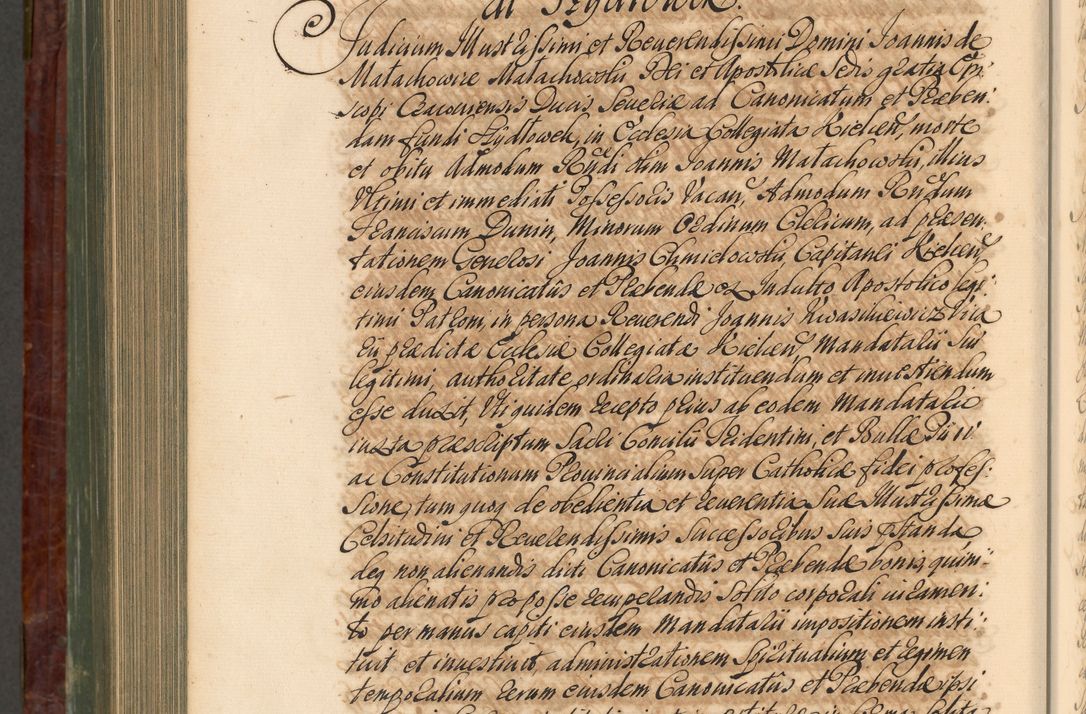 di Szydłowek.
Judicium Illustrissimi et Reuerendissimi Domini Joannis de
Małachowice Małachowski Dei et Apostolicæ Sedis gratia Epi:
scopi Cracouiensis Ducis Seueriæ ad Canonicatum et Præben:
dam fundi Szydłowek, in Ecclesia Collegiata Kielcen, morte
et obitu Admodum Rndi olim Joannis Małachowski, illius
Vltimi et immediati Possessoris Vacan, Admodum Rndum
Franciscum Dunin, Minorum Ordinum Clericum, ad præsen:
tationem Generosi Joannis Chmielowski Capitanei Kielcen,
eiusdem Canonicatûs et Præbendæ ex Indulto Apostolico legi:
timi Patroni, in persona Reuerendi Joannis Kwasikiewicz Vica
rii prædictæ Ecclesiæ Collegiatæ Kielcen, Mandatarii sui
legitimi, authoritate ordinaria instituendum et inuestiendum
esse duxit, Vti quidem recepto prius ab eodem Mandatario
iuxta præscriptum Sacri Concilii Tridentini, et Bullæ Pii IV
ac Constitutionum Prouincialium super Catholicæ fidei profes:
sione, tum quoq de obedientia et reuerentia Suæ Illustrissimæ
Celsitudini et Reuerendissimis Successoribus suis præstanda
deq non alienandis dicti Canonicatûs et Præbendæ bonis, quin:
mo alienatis pro posse recuperandis solito corporali iuramen:
to per manus capiti eiusdem Mandatarii impositionem insti:
tuit et inuestiuit, administrationem Spiritualium et regimen
temporalium rerum eiusdem Canonicatûs et Præbendæ ipsi